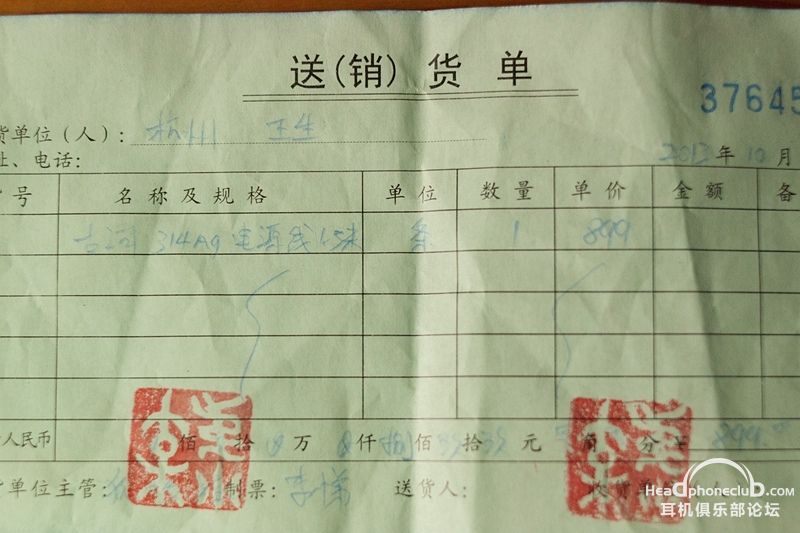 送(销)货单
37645
货单位(人): 杭州 王生
址、电话: 2012年10月
号 名称及规格 单位 数量 单价 金额 备
314Ag 电源线1.5米 条 1 899
人民币 佰 拾 万 仟 捌佰 拾 元 角 分 899
货单位主管: 制票: 李 送货人: 收货单 人
HeadphoneClub.com
耳机俱乐部论坛